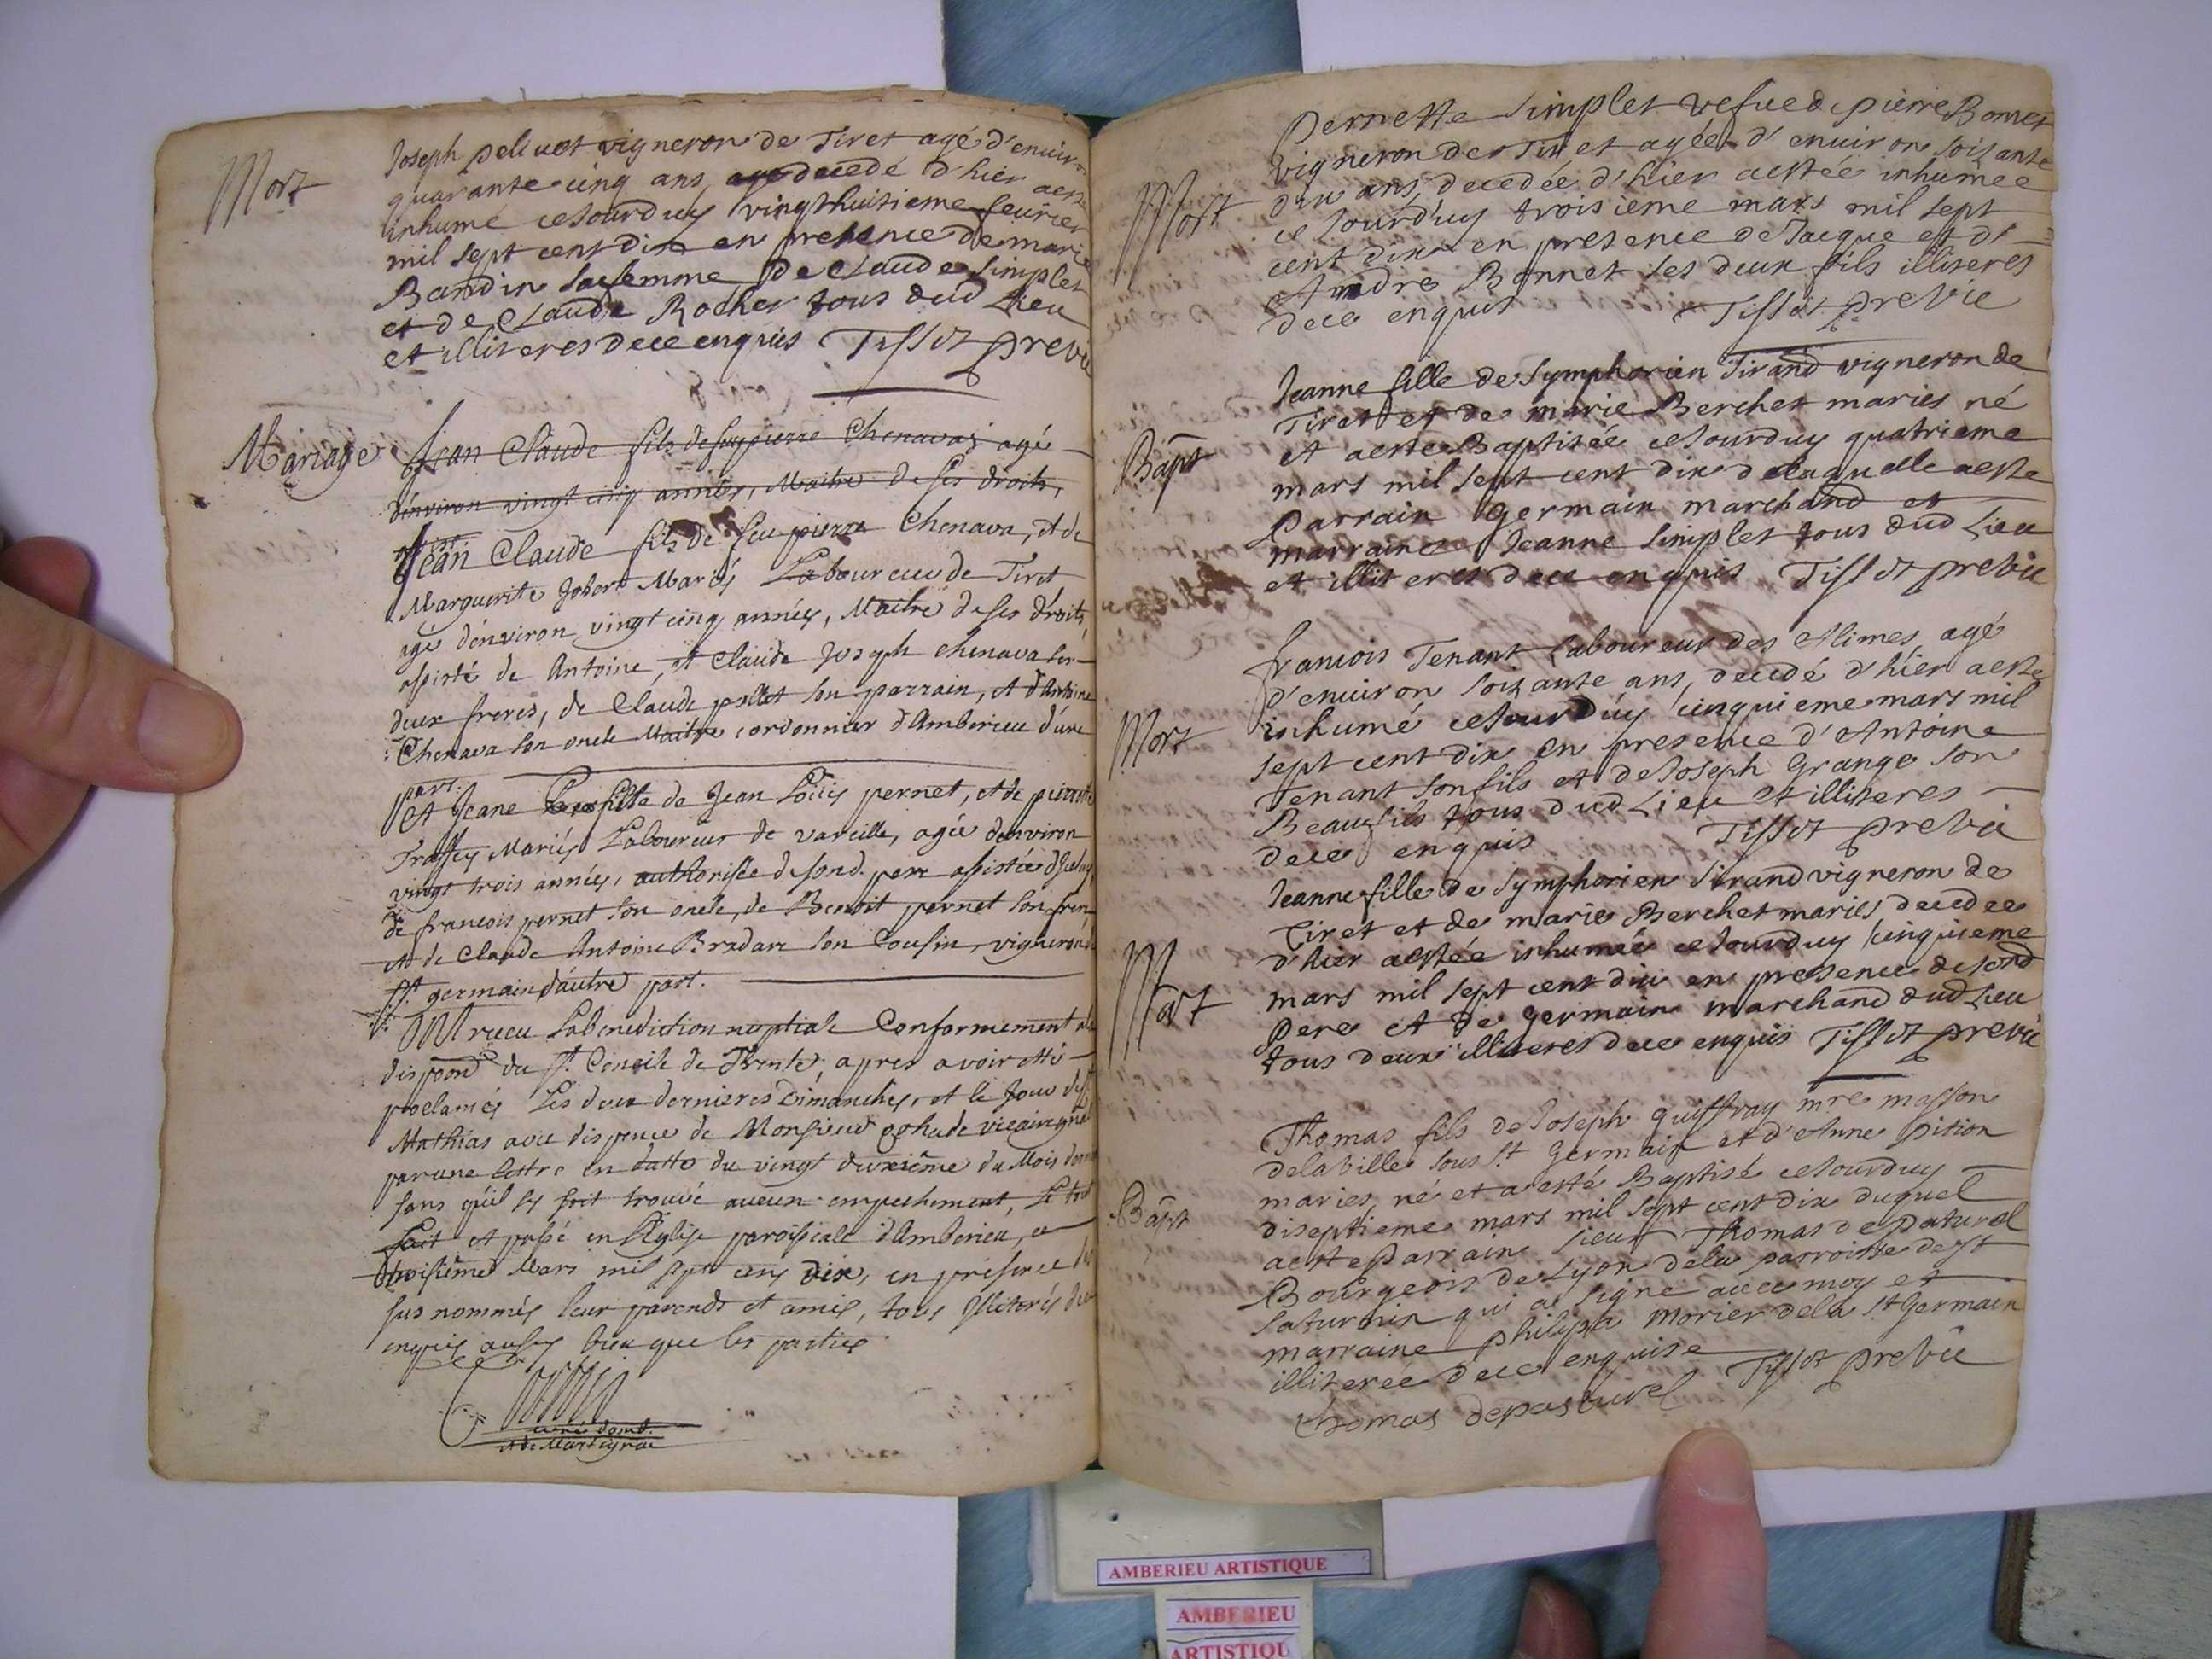 Mort
Joseph pelivot vigneron de Tiret agé d'envir
quarante cinq ans decedé d'hier aesté
inhumé cejourduy vingthuitieme feurier
mil sept cent dix en presence de marie
Bandin safemme, de Claude simplet
et de Claude Rocher tous dud Lieu
et illiteres dece enquis Tissot previc
Mariage
Jean Claude fils de feu pierre Chenavaz agé
d'environ vingt cinq années, Maitre de ses droits,
Jean Claude fils de feu pierre Chenava, et de
Marguerite Jobert Mariés Laboureur de Tiret
agé d'environ vingt cinq années, Maitre de ses droits,
assisté de Antoine, et Claude Joseph chenava ses
deux freres, de Claude pollet son parrain, et d'Antoine
Chenava son oncle Maitre cordonnier d'Amberieu d'une
part.
Et Jeane fille de Jean Loüis pernet, et de pierrette
Trassey Mariés Laboureur de vareille, agée d'environ
vingt trois années, authorisée de sond. pere assistée d'jceluy,
de francois pernet son oncle, de Benoit pernet son frere
et de Claude Antoine Bradare son Cousin, vigneron
st. germain d'autre part.
Ont receu La benediction nuptiale Conformement
dispoon du st. Concile de Trente, apres avoir esté
proclamés Les deux dernieres Dimanches, et le Jour de st
Mathias avec dispence de Monsieur cohade vicaire gnal
par une lettre en datte du vingt deuxième du Mois dernier
sans qu'il sy soit trouvé aucun empechement, le tout
fait et passé en l'Eglise paroissiale d'Amberieu, ce
troisième Mars mil sept cens dix, en presence des
sus nommés leur parends et amis, tous Illiterés dece
enquis aussy bien que les parties
curé d'amb.
et de Martignac
Mort
Pernette simplet vefue de pierre Bonnet
vigneron de Tiret et agée d'enuiron soixante
dix ans, decedée d'hier aestée inhumée
ce Jourd'uy troisieme mars mil sept
cent dix en presence de Jacque et d'
Andre Bonnet ses deux fils illiteres
dece enquis Tissot previc
Bapt
Jeanne fille de Symphorien Tirand vigneron de
Tiret et de marie Berchet maries né
et aesté Baptisée cejourduy quatrieme
mars mil sept cent dix delaquelle aesté
parrain germain marchand et
marraine Jeanne simplet tous dud Lieu
et illiteres dece enquis Tissot previc
Mort
francois Tenant Laboureur des Alimes agé
d'enuiron soixante ans, decedé d'hier aesté
inhumé cejourduy cinquieme mars mil
sept cent dix en presence d'Antoine
Tenant son fils et de Joseph Grange son
Beaufils tous dud Lieu et illiteres
dece enquis Tissot previc
Mort
Jeanne fille de Symphorien Sirand vigneron de
Tiret et de marie Berchet maries decedee
d'hier aestée inhumée cejourduy cinquieme
mars mil sept cent dix en presence de sond
pere et de germain marchand dud Lieu
tous deux illiteres dece enquis Tissot previc
Bapt
Thomas fils de Joseph guiffray mre masson
dela ville sous st germain et d'Anne pition
maries, né et a esté Baptisé cejourduy
diseptieme mars mil sept cent dix duquel
aesté parrain sieur Thomas de paturel
Bourgeois de Lyon dela parroisse de st
saturnin qui a signé auec moy et
marraine philipa morier dela st germain
illiterée dece enquise Tissot previc
thomas depasturel
AMBERIEU ARTISTIQUE
AMBERIEU
ARTISTIQU